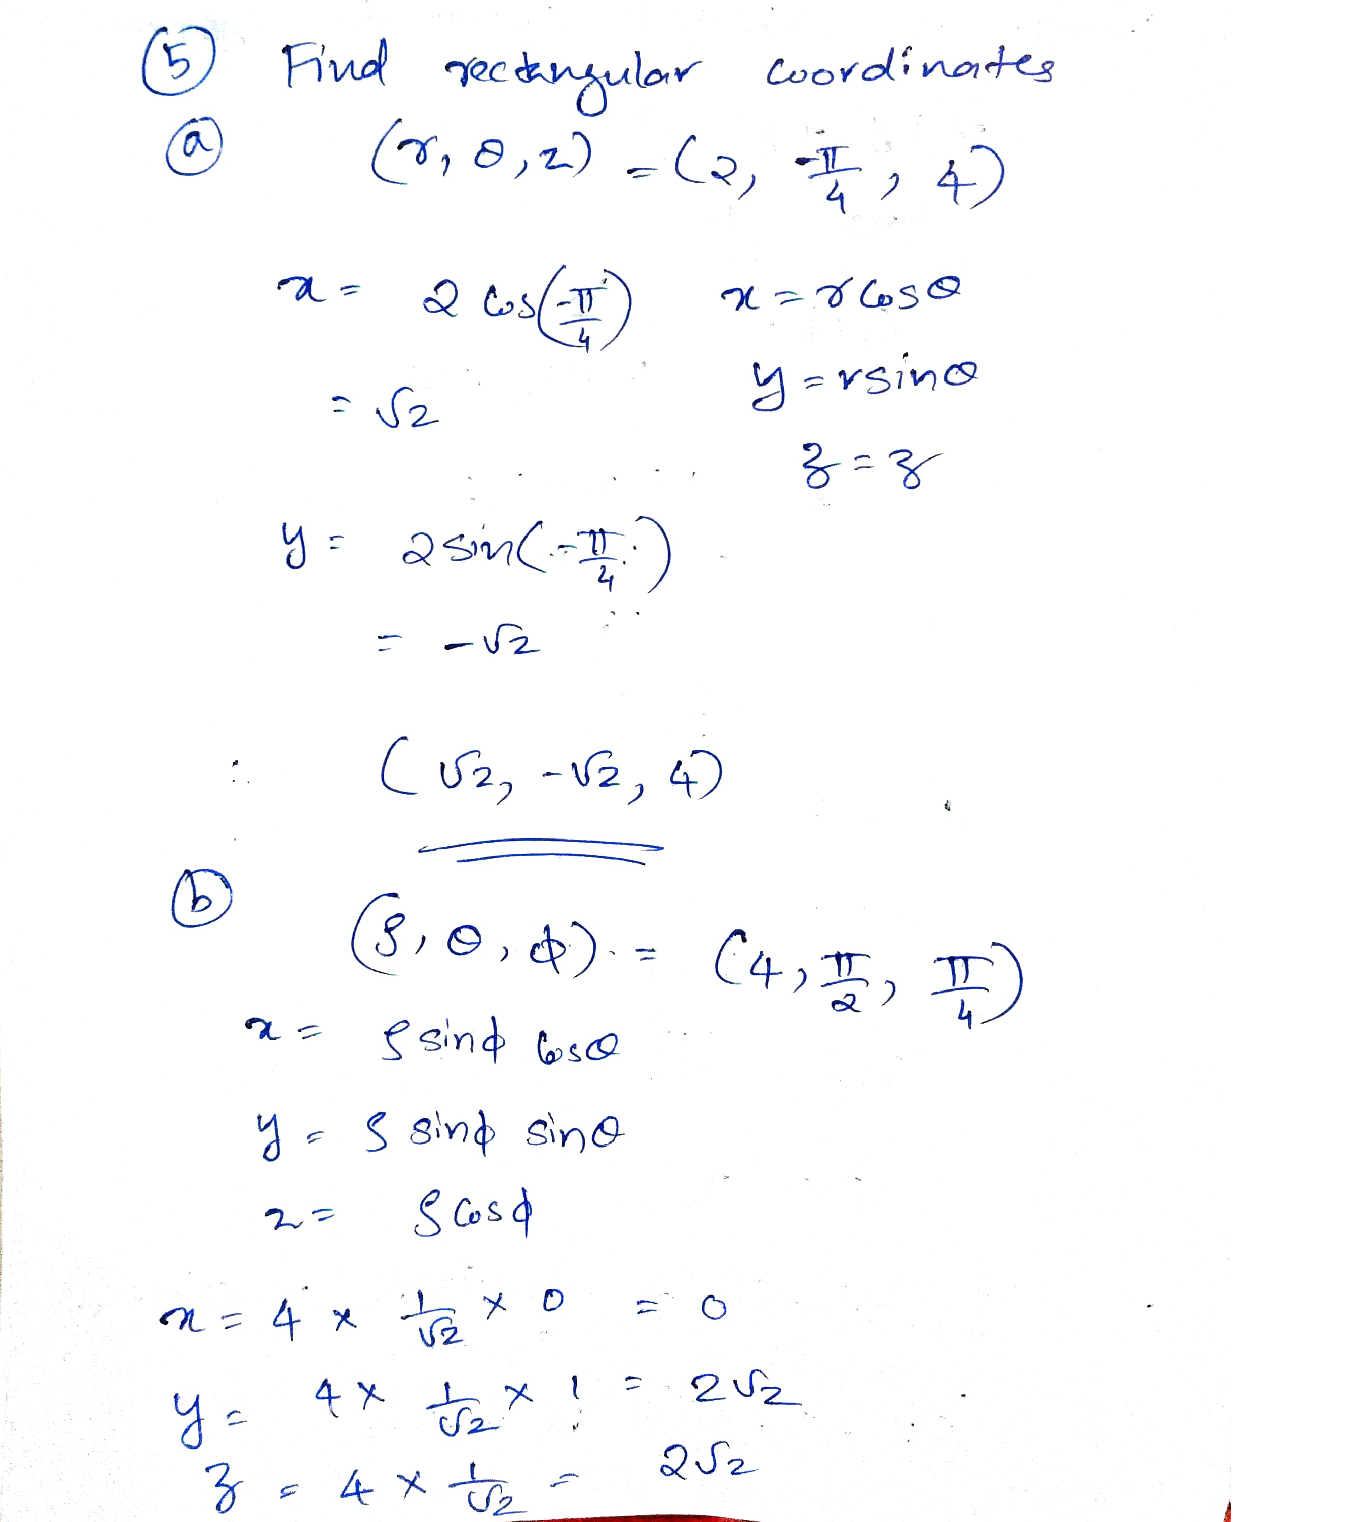 (5) Find rectangular coordinates
(a) (r, θ, z) = (2, -π/4, 4)
x = 2 cos(-π/4) x = r cosθ
= √2 y = r sinθ
z = z
y = 2 sin(-π/4)
= -√2
∴ (√2, -√2, 4)
(b) (ρ, θ, φ) = (4, π/2, π/4)
x = ρ sinφ cosθ
y = ρ sinφ sinθ
z = ρ cosφ
x = 4 × 1/√2 × 0 = 0
y = 4 × 1/√2 × 1 = 2√2
z = 4 × 1/√2 = 2√2